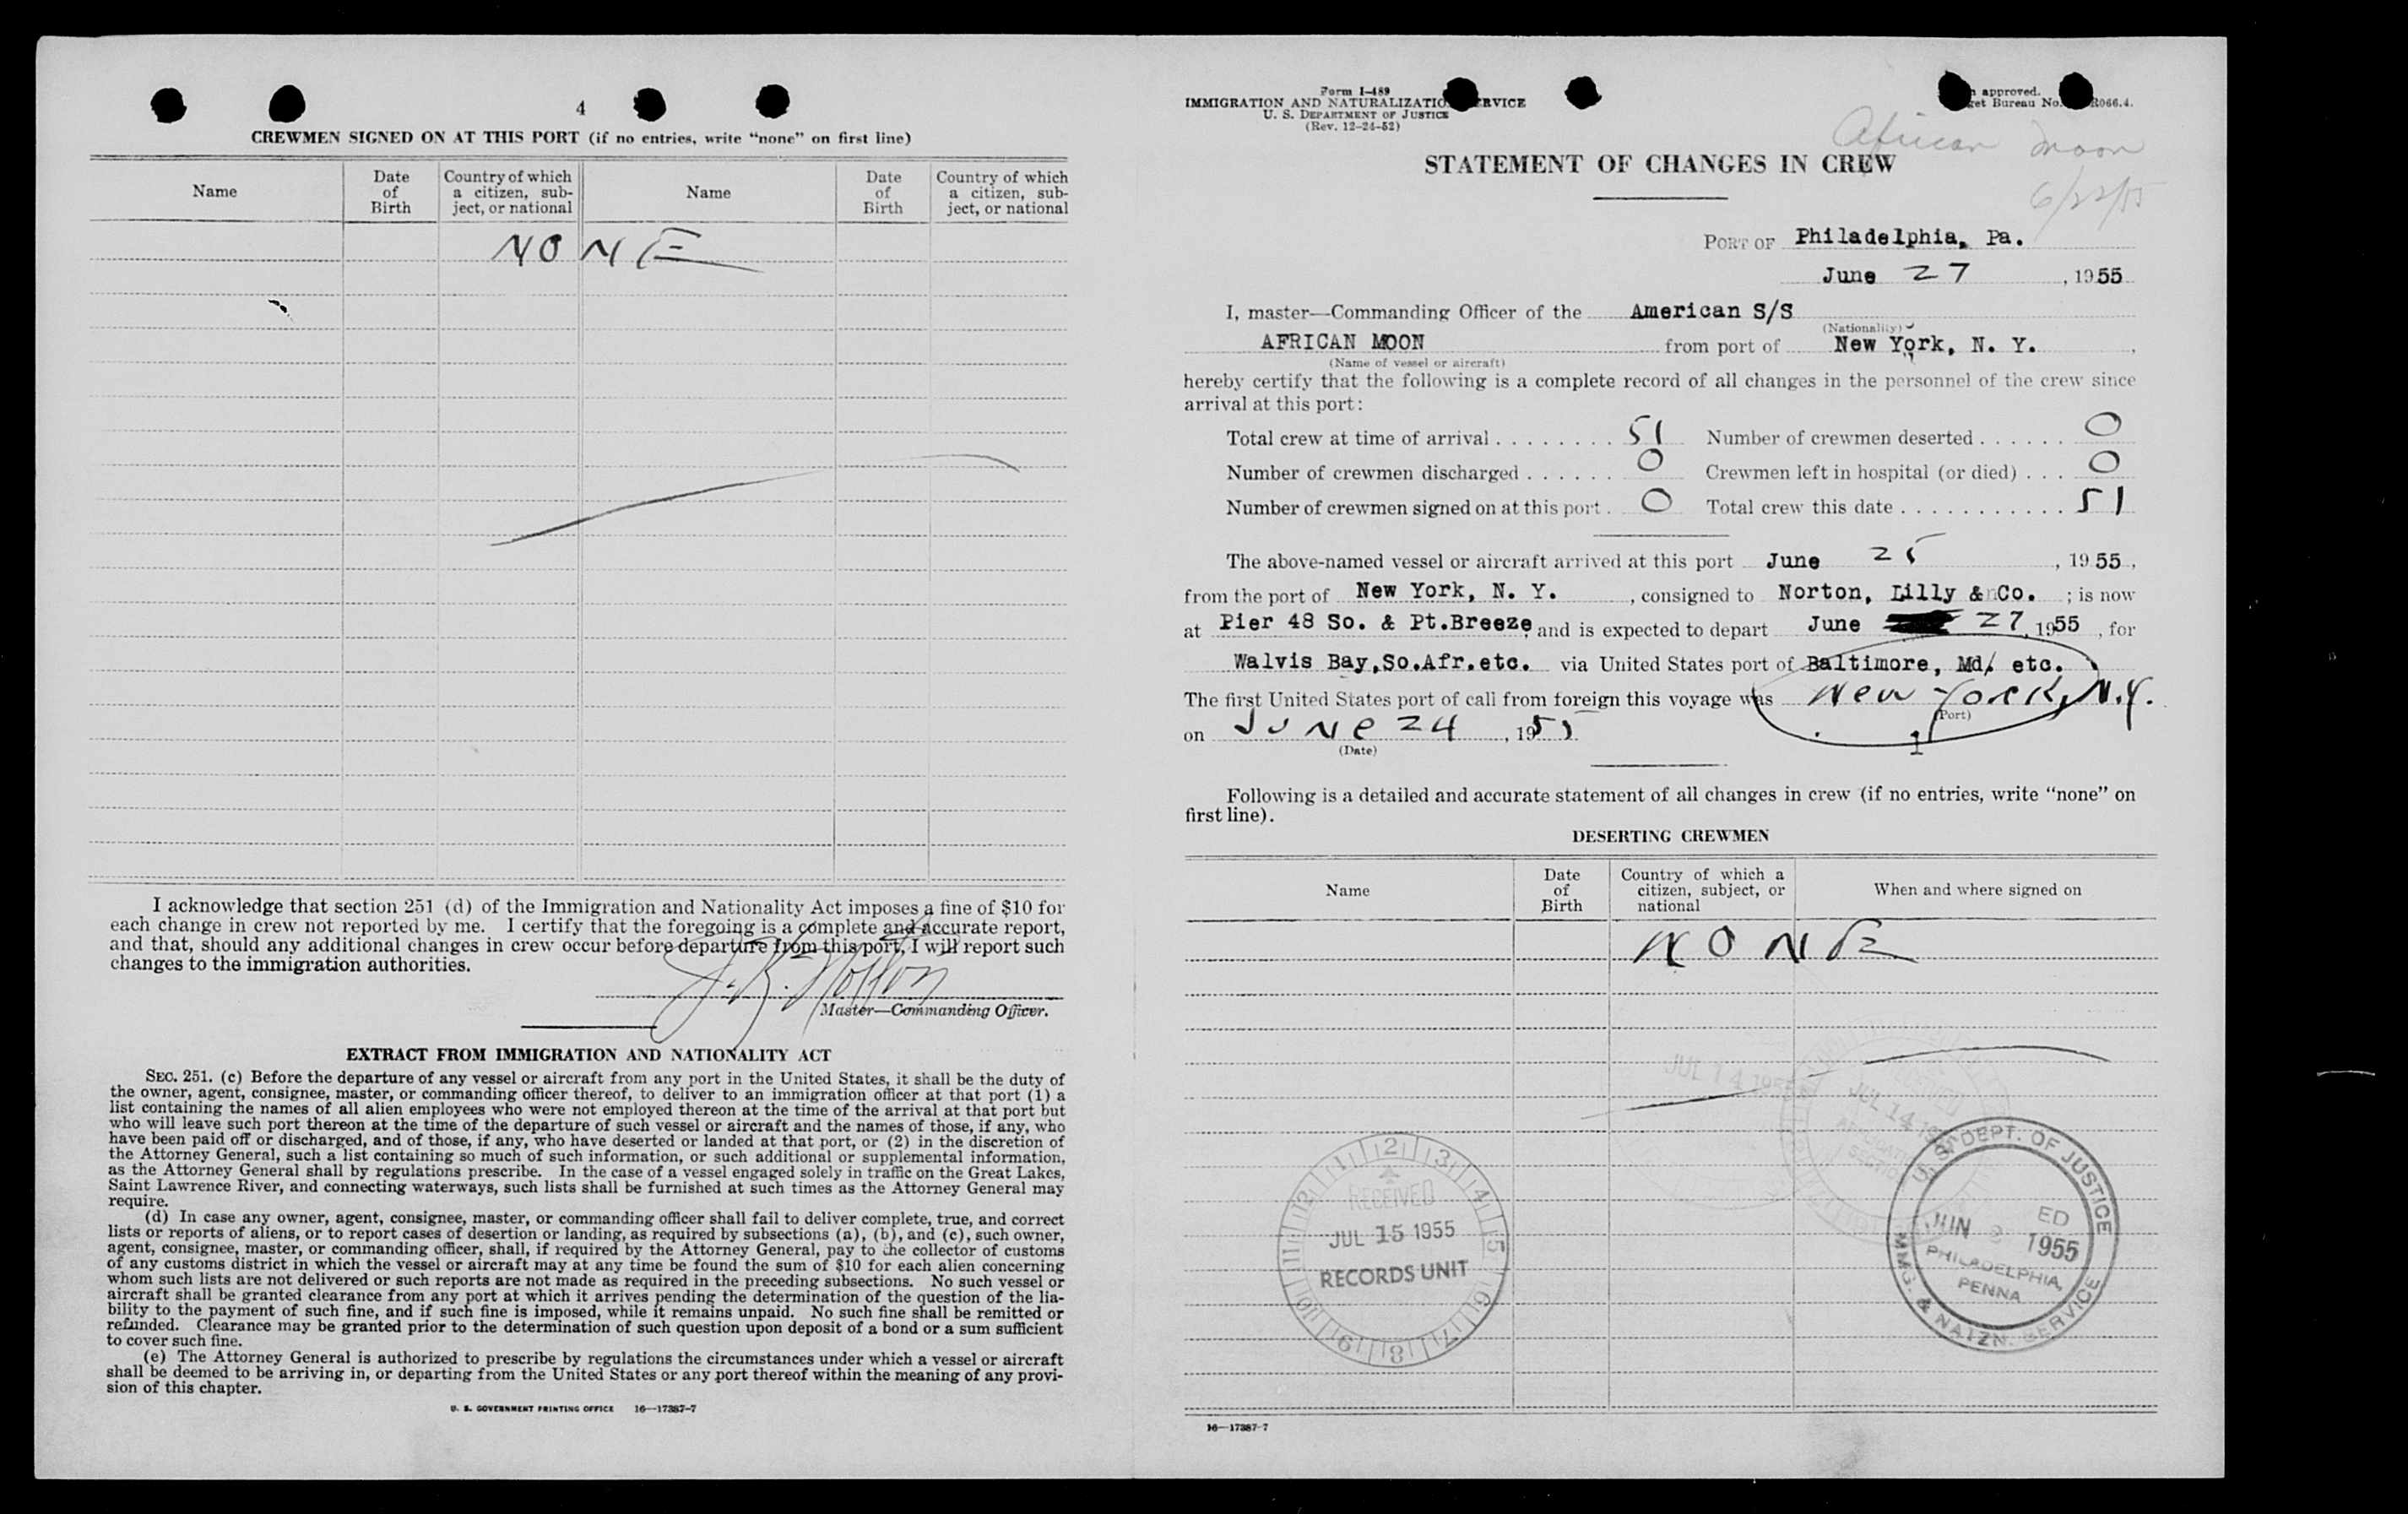 4
CREWMEN SIGNED ON AT THIS PORT (if no entries, write "none" on first line)
Name
Date of Birth
Country of which a citizen, sub-ject, or national
Name
Date of Birth
Country of which a citizen, sub-ject, or national
NONE
I acknowledge that section 251 (d) of the Immigration and Nationality Act imposes a fine of $10 for
each change in crew not reported by me. I certify that the foregoing is a complete and accurate report,
and that, should any additional changes in crew occur before departure from this port, I will report such
changes to the immigration authorities.
Master—Commanding Officer.
EXTRACT FROM IMMIGRATION AND NATIONALITY ACT
SEC. 251. (c) Before the departure of any vessel or aircraft from any port in the United States, it shall be the duty of
the owner, agent, consignee, master, or commanding officer thereof, to deliver to an immigration officer at that port (1) a
list containing the names of all alien employees who were not employed thereon at the time of the arrival at that port but
who will leave such port thereon at the time of the departure of such vessel or aircraft and the names of those, if any, who
have been paid off or discharged, and of those, if any, who have deserted or landed at that port, or (2) in the discretion of
the Attorney General, such a list containing so much of such information, or such additional or supplemental information,
as the Attorney General shall by regulations prescribe. In the case of a vessel engaged solely in traffic on the Great Lakes,
Saint Lawrence River, and connecting waterways, such lists shall be furnished at such times as the Attorney General may
require.
(d) In case any owner, agent, consignee, master, or commanding officer shall fail to deliver complete, true, and correct
lists or reports of aliens, or to report cases of desertion or landing, as required by subsections (a), (b), and (c), such owner,
agent, consignee, master, or commanding officer, shall, if required by the Attorney General, pay to the collector of customs
of any customs district in which the vessel or aircraft may at any time be found the sum of $10 for each alien concerning
whom such lists are not delivered or such reports are not made as required in the preceding subsections. No such vessel or
aircraft shall be granted clearance from any port at which it arrives pending the determination of the question of the lia-
bility to the payment of such fine, and if such fine is imposed, while it remains unpaid. No such fine shall be remitted or
refunded. Clearance may be granted prior to the determination of such question upon deposit of a bond or a sum sufficient
to cover such fine.
(e) The Attorney General is authorized to prescribe by regulations the circumstances under which a vessel or aircraft
shall be deemed to be arriving in, or departing from the United States or any port thereof within the meaning of any provi-
sion of this chapter.
U. S. GOVERNMENT PRINTING OFFICE 16—17387-7
Form I-489
IMMIGRATION AND NATURALIZATIO RVICE
U. S. DEPARTMENT OF JUSTICE
(Rev. 12-24-52)
approved.
et Bureau No. R066.4.
African Moon
6/22/55
STATEMENT OF CHANGES IN CREW
PORT OF Philadelphia, Pa.
June 27, 1955
I, master—Commanding Officer of the American S/S
(Nationality)
AFRICAN MOON from port of New York, N. Y.,
(Name of vessel or aircraft)
hereby certify that the following is a complete record of all changes in the personnel of the crew since
arrival at this port:
Total crew at time of arrival ........ 51 Number of crewmen deserted ...... 0
Number of crewmen discharged ...... 0 Crewmen left in hospital (or died) ... 0
Number of crewmen signed on at this port . 0 Total crew this date ............ 51
The above-named vessel or aircraft arrived at this port June 25, 1955,
from the port of New York, N. Y., consigned to Norton, Lilly & Co. ; is now
at Pier 48 So. & Pt.Breeze, and is expected to depart June 27, 1955, for
Walvis Bay,So.Afr.etc. via United States port of Baltimore, Md. etc.
The first United States port of call from foreign this voyage was New York, N.Y.
(Port)
on June 24, 1955
(Date)
Following is a detailed and accurate statement of all changes in crew (if no entries, write "none" on
first line).
DESERTING CREWMEN
Name
Date of Birth
Country of which a citizen, subject, or national
When and where signed on
NONE
JUL 14 1955
JUL 14 1955
RECEIVED
JUL 15 1955
RECORDS UNIT
U. S. DEPT. OF JUSTICE
JUN 1955
PHILADELPHIA,
PENNA
IMMG. & NATZN. SERVICE
16—17387-7